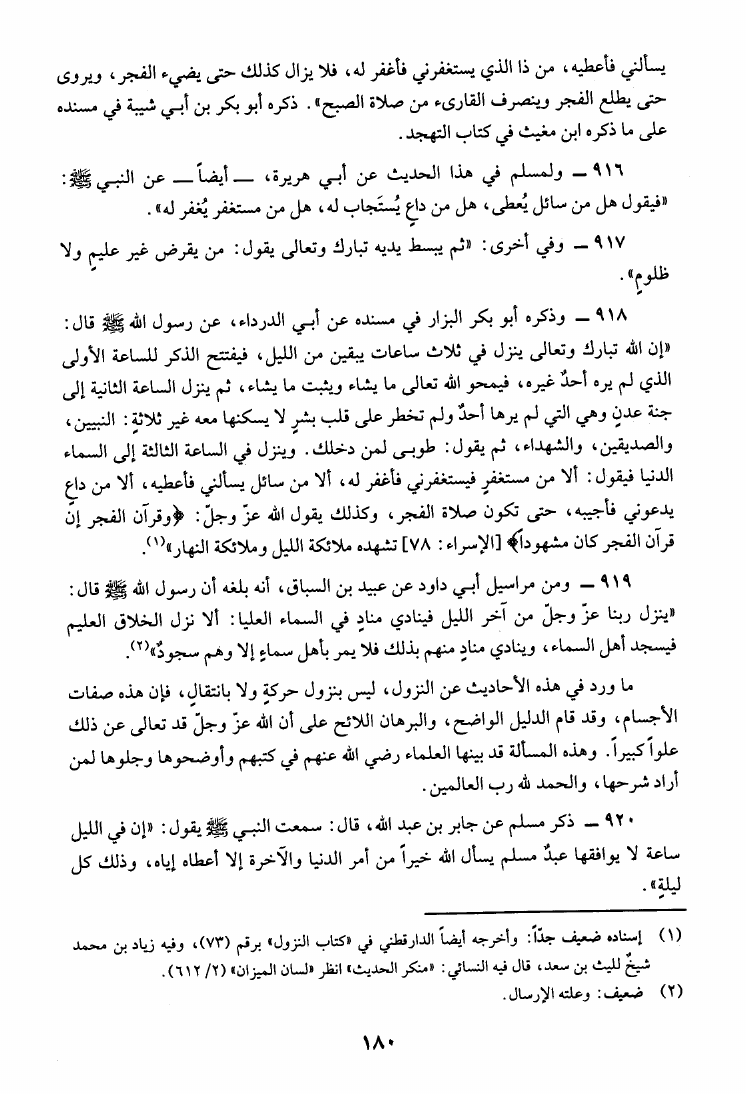 يسألني فأعطيه، من ذا الذي يستغفرني فأغفر له، فلا يزال كذلك حتى يضيء الفجر، ويروى
حتى يطلع الفجر وينصرف القارىء من صلاة الصبح». ذكره أبو بكر بن أبي شيبة في مسنده
على ما ذكره ابن مغيث في كتاب التهجد.
٩١٦ ـ ولمسلم في هذا الحديث عن أبي هريرة، ـ أيضاً ـ عن النبي ﷺ:
«فيقول هل من سائل يُعطى، هل من داعٍ يُستَجاب له، هل من مستغفر يُغفر له».
٩١٧ ـ وفي أخرى: «ثم يبسط يديه تبارك وتعالى يقول: من يقرض غير عليمٍ ولا
ظلومٍ».
٩١٨ ـ وذكره أبو بكر البزار في مسنده عن أبي الدرداء، عن رسول الله ﷺ قال:
«إن الله تبارك وتعالى ينزل في ثلاث ساعات يبقين من الليل، فيفتتح الذكر للساعة الأولى
الذي لم يره أحدٌ غيره، فيمحو الله تعالى ما يشاء ويثبت ما يشاء، ثم ينزل الساعة الثانية إلى
جنة عدنٍ وهي التي لم يرها أحدٌ ولم تخطر على قلب بشرٍ لا يسكنها معه غير ثلاثةٍ: النبيين،
والصديقين، والشهداء، ثم يقول: طوبى لمن دخلك. وينزل في الساعة الثالثة إلى السماء
الدنيا فيقول: ألا من مستغفرٍ فيستغفرني فأغفر له، ألا من سائل يسألني فأعطيه، ألا من داعٍ
يدعوني فأجيبه، حتى تكون صلاة الفجر، وكذلك يقول الله عزّ وجلّ: ﴿وقرآن الفجر إن
قرآن الفجر كان مشهوداً﴾ [الإسراء: ٧٨] تشهده ملائكة الليل وملائكة النهار»(١).
٩١٩ ـ ومن مراسيل أبي داود عن عبيد بن السباق، أنه بلغه أن رسول الله ﷺ قال:
«ينزل ربنا عزّ وجلّ من آخر الليل فينادي منادٍ في السماء العليا: ألا نزل الخلاق العليم
فيسجد أهل السماء، وينادي منادٍ منهم بذلك فلا يمر بأهل سماءٍ إلا وهم سجودٌ»(٢).
ما ورد في هذه الأحاديث عن النزول، ليس بنزول حركةٍ ولا بانتقالٍ، فإن هذه صفات
الأجسام، وقد قام الدليل الواضح، والبرهان اللائح على أن الله عزّ وجلّ قد تعالى عن ذلك
علواً كبيراً. وهذه المسألة قد بينها العلماء رضي الله عنهم في كتبهم وأوضحوها وجلوها لمن
أراد شرحها، والحمد لله رب العالمين.
٩٢٠ ـ ذكر مسلم عن جابر بن عبد الله، قال: سمعت النبي ﷺ يقول: «إن في الليل
ساعة لا يوافقها عبدٌ مسلم يسأل الله خيراً من أمر الدنيا والآخرة إلا أعطاه إياه، وذلك كل
ليلةٍ».
(١) إسناده ضعيف جدّاً: وأخرجه أيضاً الدارقطني في «كتاب النزول» برقم (٧٣)، وفيه زياد بن محمد
شيخٌ لليث بن سعد، قال فيه النسائي: «منكر الحديث» انظر «لسان الميزان» (٢/ ٦١٢).
(٢) ضعيف: وعلته الإرسال.
١٨٠